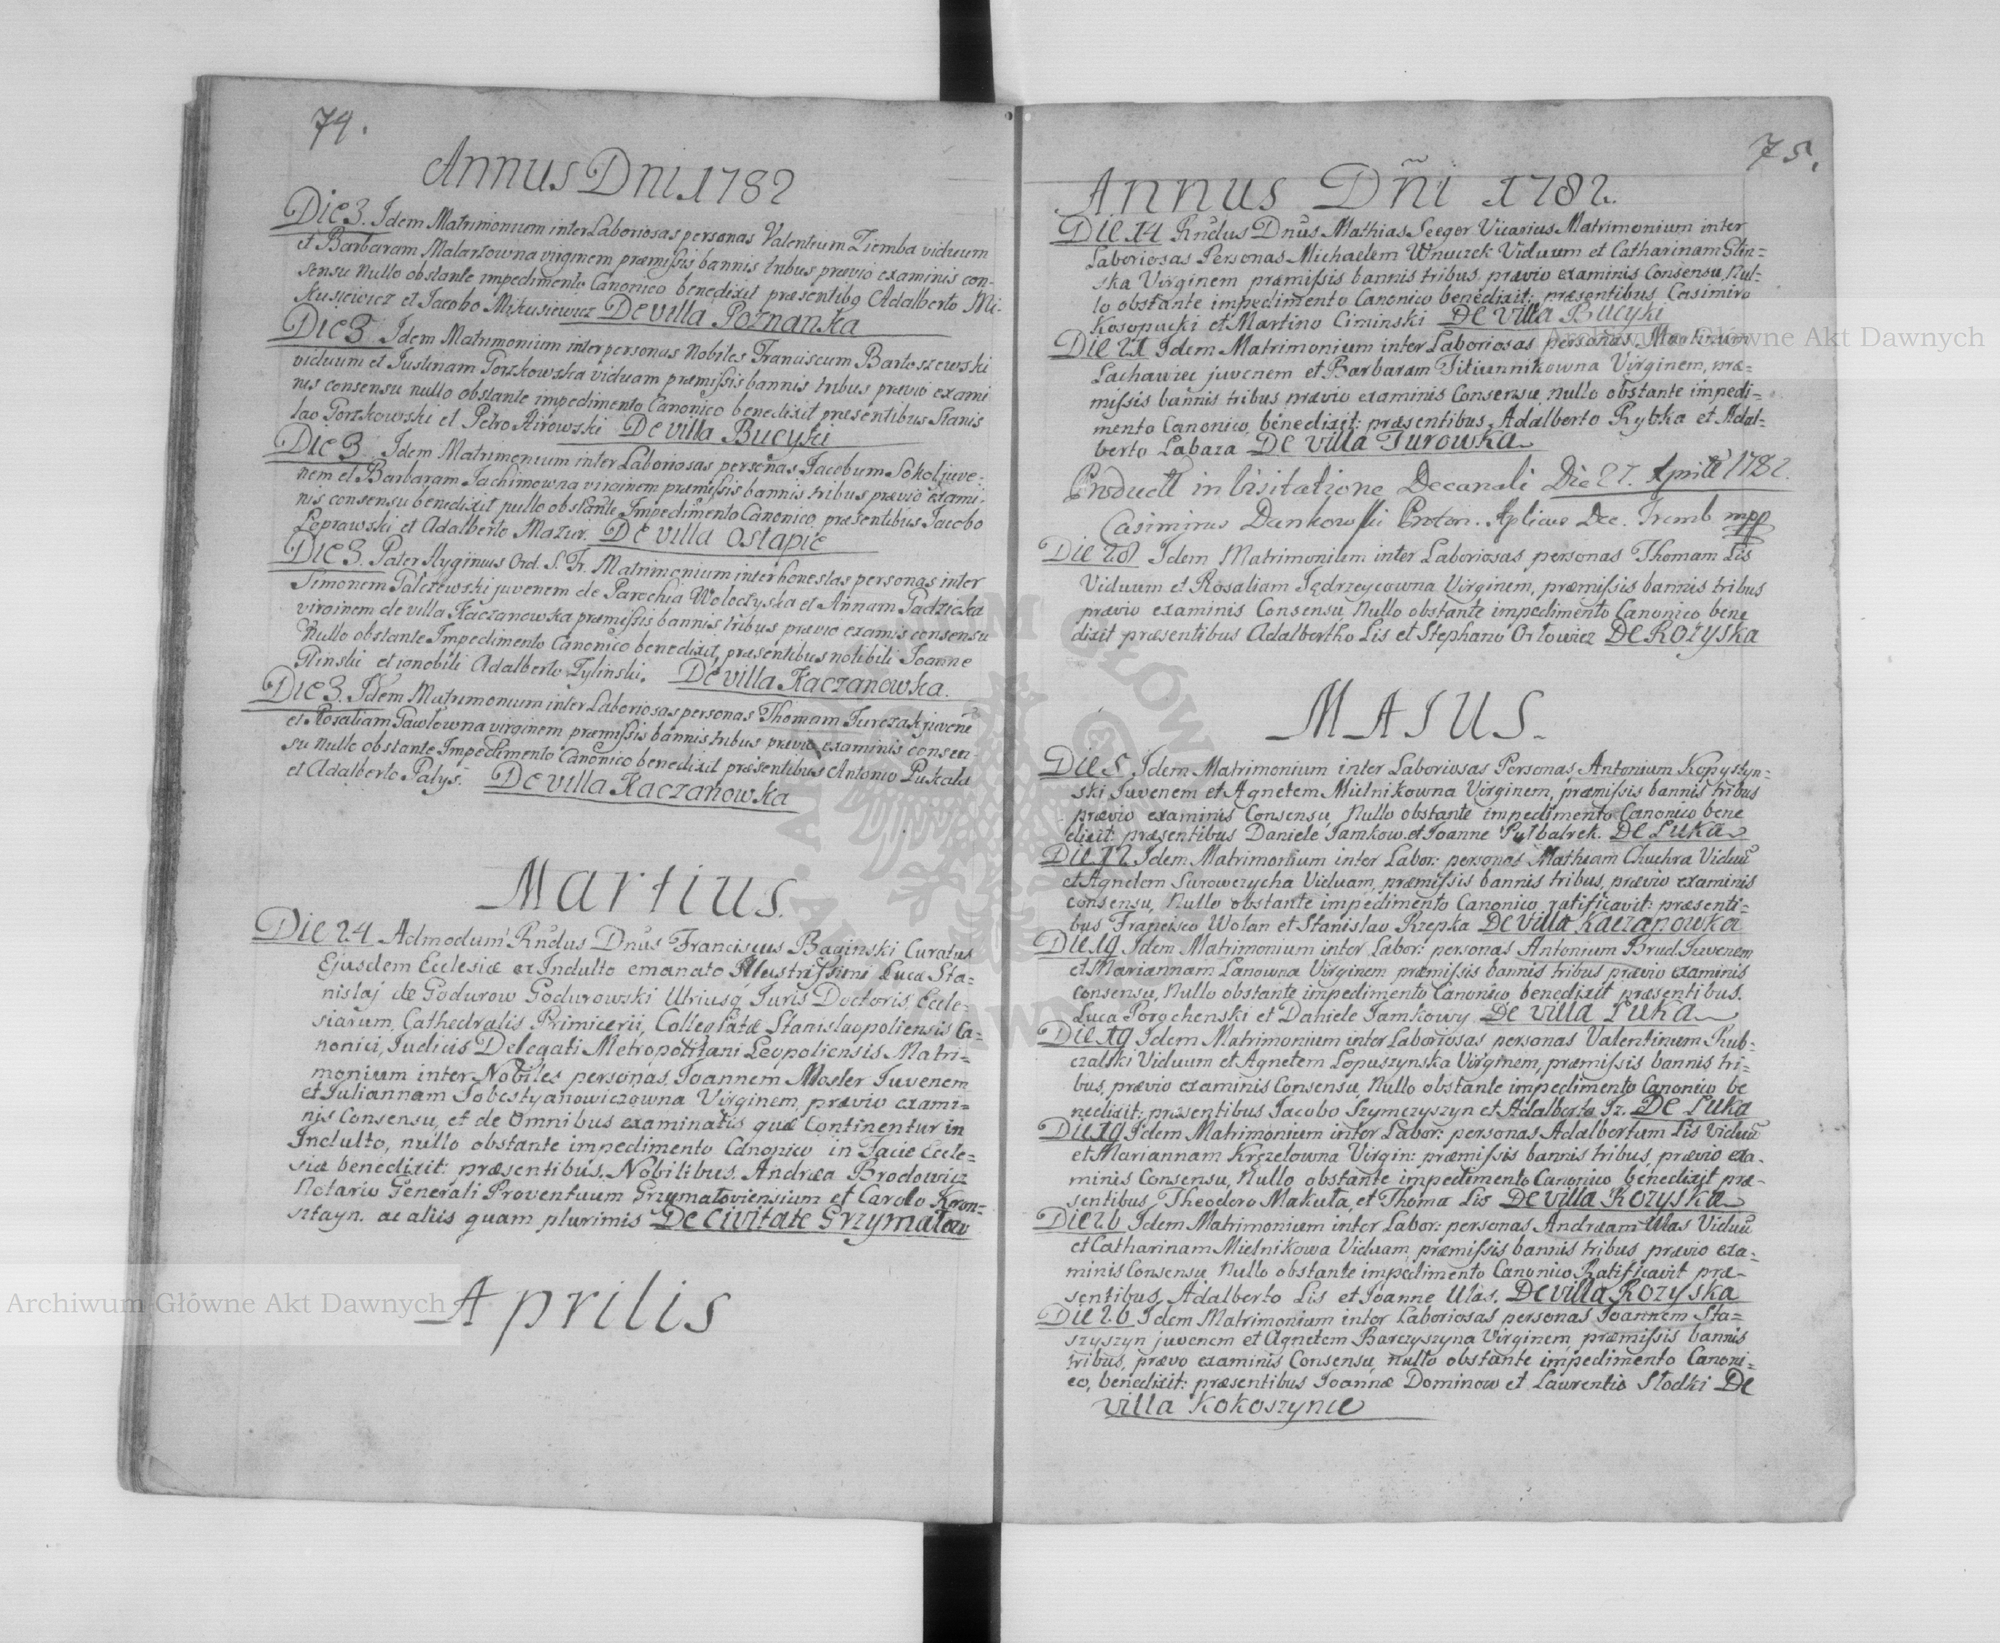 74.
Annus Dni 1782
Die 3. Idem Matrimonium inter Laboriosas personas Valentium Ziemba viduum
et Barbaram Malarzowna virginem præmissis bannis tribus prævio examinis con-
sensu nullo obstante impedimento Canonico benedixit præsentibg Adalberto Mi-
kusiewicz et Jacobo Mikusiewicz De villa Poznanka
Die 3. Idem Matrimonium inter personas Nobiles Franciscum Bartoszewski
viduum et Justinam Gorzkowska viduam præmissis bannis tribus prævio exami
nis consensu nullo obstante impedimento Canonico benedixit præsentibus Stanis
lao Gorzkowski et Petro Airowski De villa Bucyki
Die 3 Idem Matrimonium inter Laboriosas personas Jacobum Sokol juve-
nem et Barbaram Jachimowna virginem præmissis bannis tribus prævio exami-
nis consensu benedixit nullo obstante Impedimento Canonico, præsentibus Jacobo
Leprawski et Adalberto Mazur. De villa Ostapie
Die 3. Pater Hyginus Ord. S. Fr. Matrimonium inter honestas personas inter
Simonem Galczewski juvenem de Parochia Woloczyska et Annam
virginem de villa Kaczanowska præmissis bannis tribus prævio examis consensu
Nullo obstante Impedimento Canonico benedixit, præsentibus nobili Joanne
Glinski et ignobili Adalberto Tylinski. De villa Kaczanowka.
Die 3. Idem Matrimonium inter Laboriosas personas Thomam Jurczak juvene
et Rosaliam Pawlowna virginem præmissis bannis tribus prævio examinis consen-
su nullo obstante Impedimento Canonico benedixit præsentibus Antonio Puskala
et Adalberto Palys. De villa Kaczanowka
Martius.
Die 24 Admodum Rndus Dnus Franciscus Baginski Curatus
Ejusdem Ecclesiæ ex Indulto emanato Illustrissimi Lucæ Sta-
nislaj de Godurow Godurowski Utriusq Juris Doctoris, Eccle-
siarum, Cathedralis Primicerii, Collegiatæ Stanislaopoliensis Ca-
nonici, Judicis Delegati Metropolitani Leopoliensis Matri-
monium inter Nobiles personas Joannem Mosler Juvenem
et Juliannam Sobestyanowiczowna Virginem, prævio exami-
nis Consensu, et de Omnibus examinatis quæ Continentur in
Indulto, nullo obstante impedimento Canonico in Facie Eccle-
siæ benedixit: præsentibus. Nobilibus. Andræa Brodowicz
Notario Generali Proventuum Grzymaloviensium et Carolo Kron-
sztayn. ac aliis quam plurimis De Civitate Grzymałow
Aprilis
75.
Annus Dñi 1782.
Die 14 Rndus Dnus Mathias Seegor Vicarius Matrimonium inter
Laboriosas Personas Michaelem Wnuczek Viduum et Catharinam Glin-
ska Virginem præmissis bannis tribus, prævio examinis Consensu, Nul-
lo obstante impedimento Canonico benedixit: præsentibus Casimiro
Kosopucki et Martino Ciminski De Villa Bucyki
Die 21 Idem Matrimonium inter Laboriosas personas, Martinum
Lachawiec juvenem et Barbaram Titiunnikowna Virginem, præ-
missis bannis tribus prævio examinis Consensu, nullo obstante impedi-
mento Canonico, benedixit: præsentibus, Adalberto Rybka et Adal-
berto Labaza De Villa Turowka
Product in Visitatione Decanali Die 27. Aprill 1782.
Casimirus Dankowski Proton. Aplicus Dec. Tremb mpp
Die 28 Idem Matrimonium inter Laboriosas personas Thomam Lis
Viduum et Rosaliam Jędrzeycowna Virginem, præmissis bannis tribus
prævio examinis Consensu, Nullo obstante impedimento Canonico bene
dixit præsentibus Adalbertho Lis et Stephano Orłowicz De Rożyska
MAIUS.
Die 5 Idem Matrimonium inter Laboriosas Personas Antonium Kopystyn-
ski Juvenem et Agnetem Mielnikowna Virginem, præmissis bannis tribus
prævio examinis Consensu, Nullo obstante impedimento Canonico bene
dixit: præsentibus Daniele Jamkow. et Joanne De Luka
Die 12 Idem Matrimonium inter Labor: personas Mathiam Chuchra Viduu
et Agnetem Surowczycha Viduam, præmissis bannis tribus, prævio examinis
Consensu, Nullo obstante impedimento Canonico ratificavit: præsenti-
bus Francisco Wolan et Stanislao Rzepka De Villa Kaczanowka
Die 19 Idem Matrimonium inter Labor: personas Antonium Brud Juvenem
et Mariannam Lanowna Virginem præmissis bannis tribus prævio examinis
Consensu, Nullo obstante impedimento Canonico, benedixit præsentibus.
Luca Porochenski et Daniele Jamkowy De villa Luka
Die 19 Idem Matrimonium inter Laboriosas personas Valentinum Rub-
czalski Viduum et Agnetem Lopuszynska Virginem, præmissis bannis tri-
bus, prævio examinis Consensu, Nullo obstante impedimento Canonico be
nedixit: præsentibus Jacobo Szymczyszyn et Adalberto Jz. De Luka
Die 19 Idem Matrimonium inter Labor: personas Adalbertum Lis Viduu
et Mariannam Krezelowna Virgin: præmissis bannis tribus, prævio exa-
minis Consensu, Nullo obstante impedimento Canonico, benedixit præ-
sentibus Theodoro Makuta, et Thoma Lis De Villa Rozyska
Die 26 Idem Matrimonium inter Labor: personas Andræam Ulas Viduu
et Catharinam Mielnikowa Viduam, præmissis bannis tribus, prævio exa-
minis Consensu, Nullo obstante impedimento Canonico Ratificavit præ-
sentibus, Adalberto Lis et Joanne Ulas. De villa Rozyska
Die 26 Idem Matrimonium inter Laboriosas personas Joannem Sta-
szyszyn juvenem et Agnetem Barczyszyna Virginem, præmissis bannis
tribus, prævo examinis Consensu, nullo obstante impedimento Canoni-
co, benedixit: præsentibus Joannæ Dominow et Laurentio Słodki De
villa Kokoszynce
Archiwum Główne Akt Dawnych
Archiwum Główne Akt Dawnych